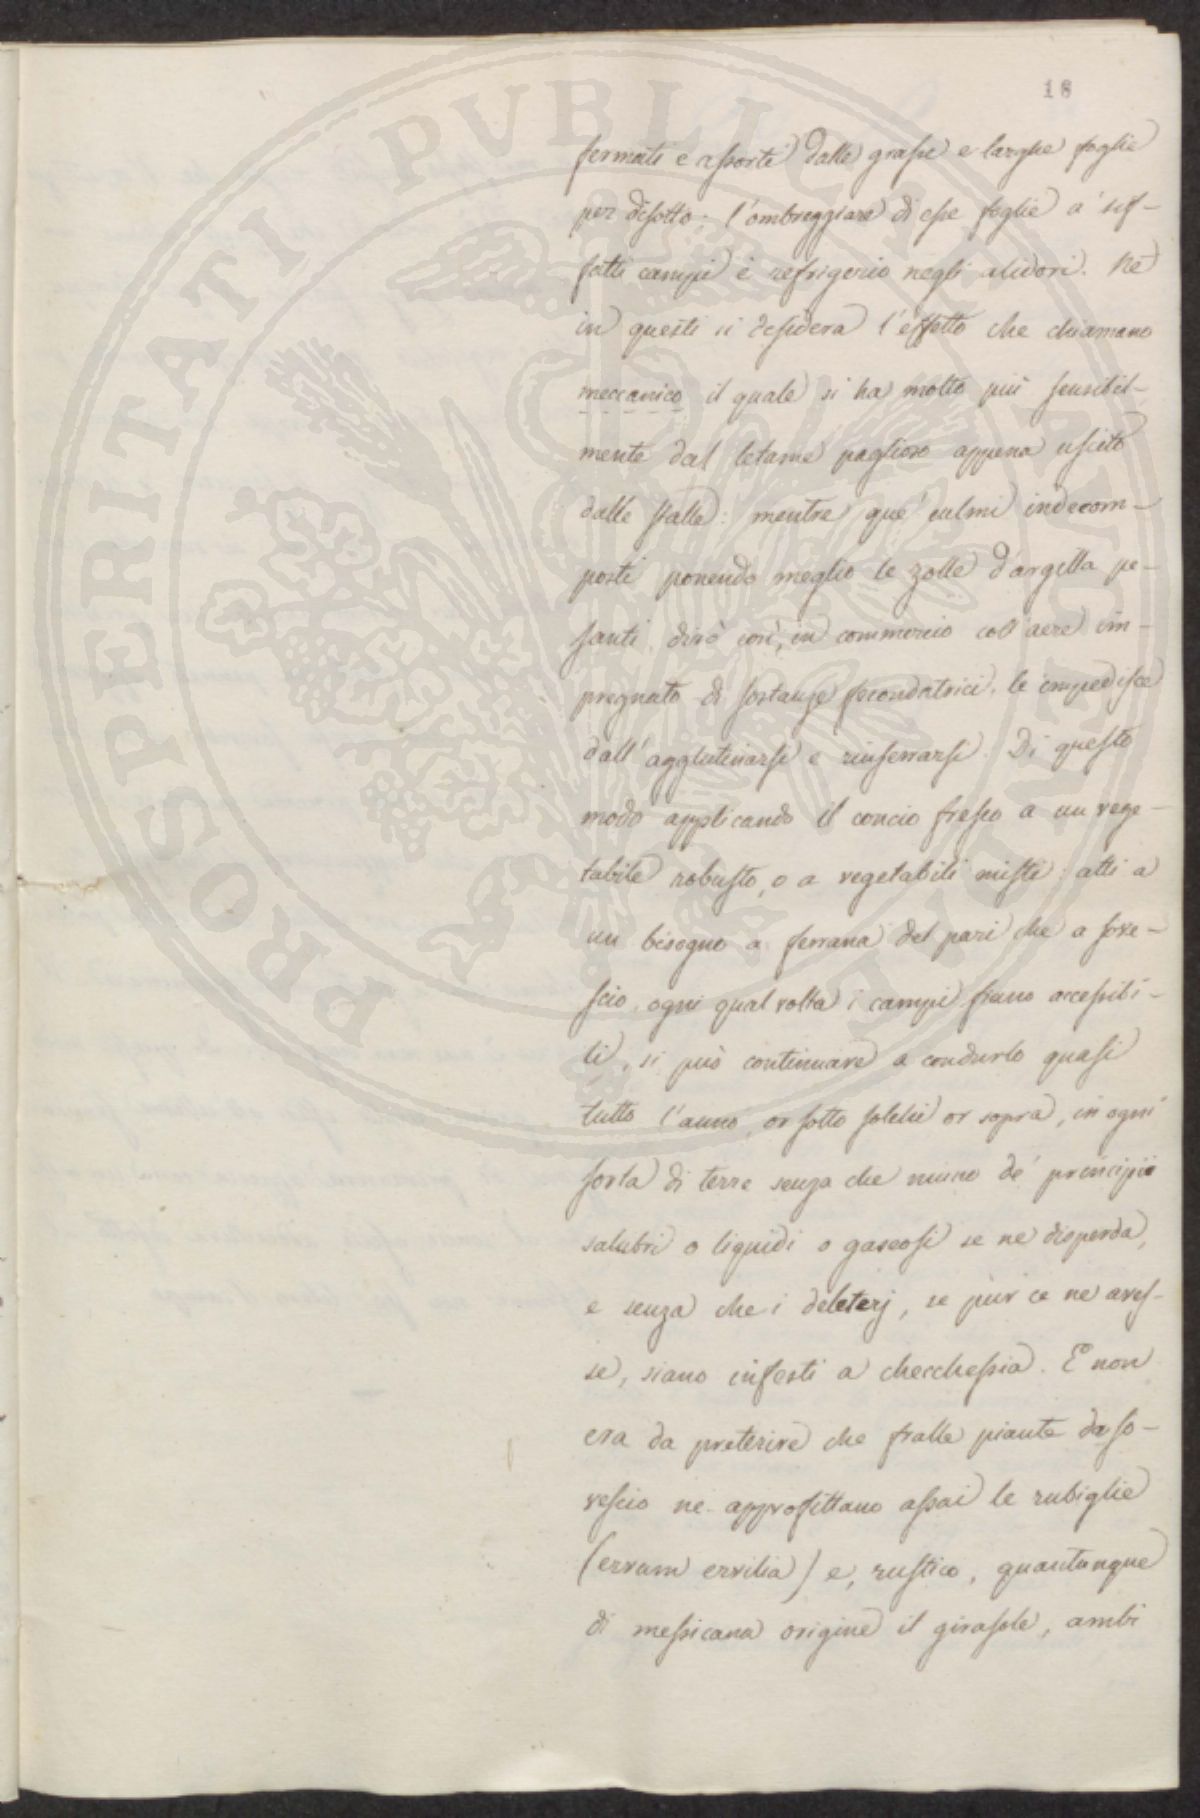 18
fermati e assorti dalle grasse e larghe foglie
per disotto; l'ombreggiare di esse foglie a' sif-
fatti campi è refrigerio negli alidori. Nè
in questi si desidera l'effetto che chiamano
meccanico il quale si ha molto più sensibil-
mente dal letame paglioso appena uscito
dalle stalle: mentre que' culmi indecom-
posti ponendo meglio le zolle d'argilla pe-
santi, dirò così, in commercio coll'aere im-
pregnato di sostanze fecondatrici, le impedisce
dall'agglutinarsi e rinserrarsi. Di questo
modo applicando il concio fresco a un vege-
tabile robusto, o a vegetabili misti atti a
un bisogno a ferrana del pari che a sove-
scio, ogni qual volta i campi siano accessibi-
li, si può continuare a condurlo quasi
tutto l'anno, or sotto solchi or sopra, in ogni
sorta di terre senza che niuno de' principii
salubri o liquidi o gaseosi se ne disperda,
e senza che i deleterj, se pur ce ne aves-
se, siano infesti a checchessia. E non
era da preterire che fralle piante da so-
vescio ne approfittano assai le rubiglie
(ervum ervilia) e, rustico, quantunque
di messicana origine il girasole, ambi
PROSPERITATI PUBLICAE AUGENDAE